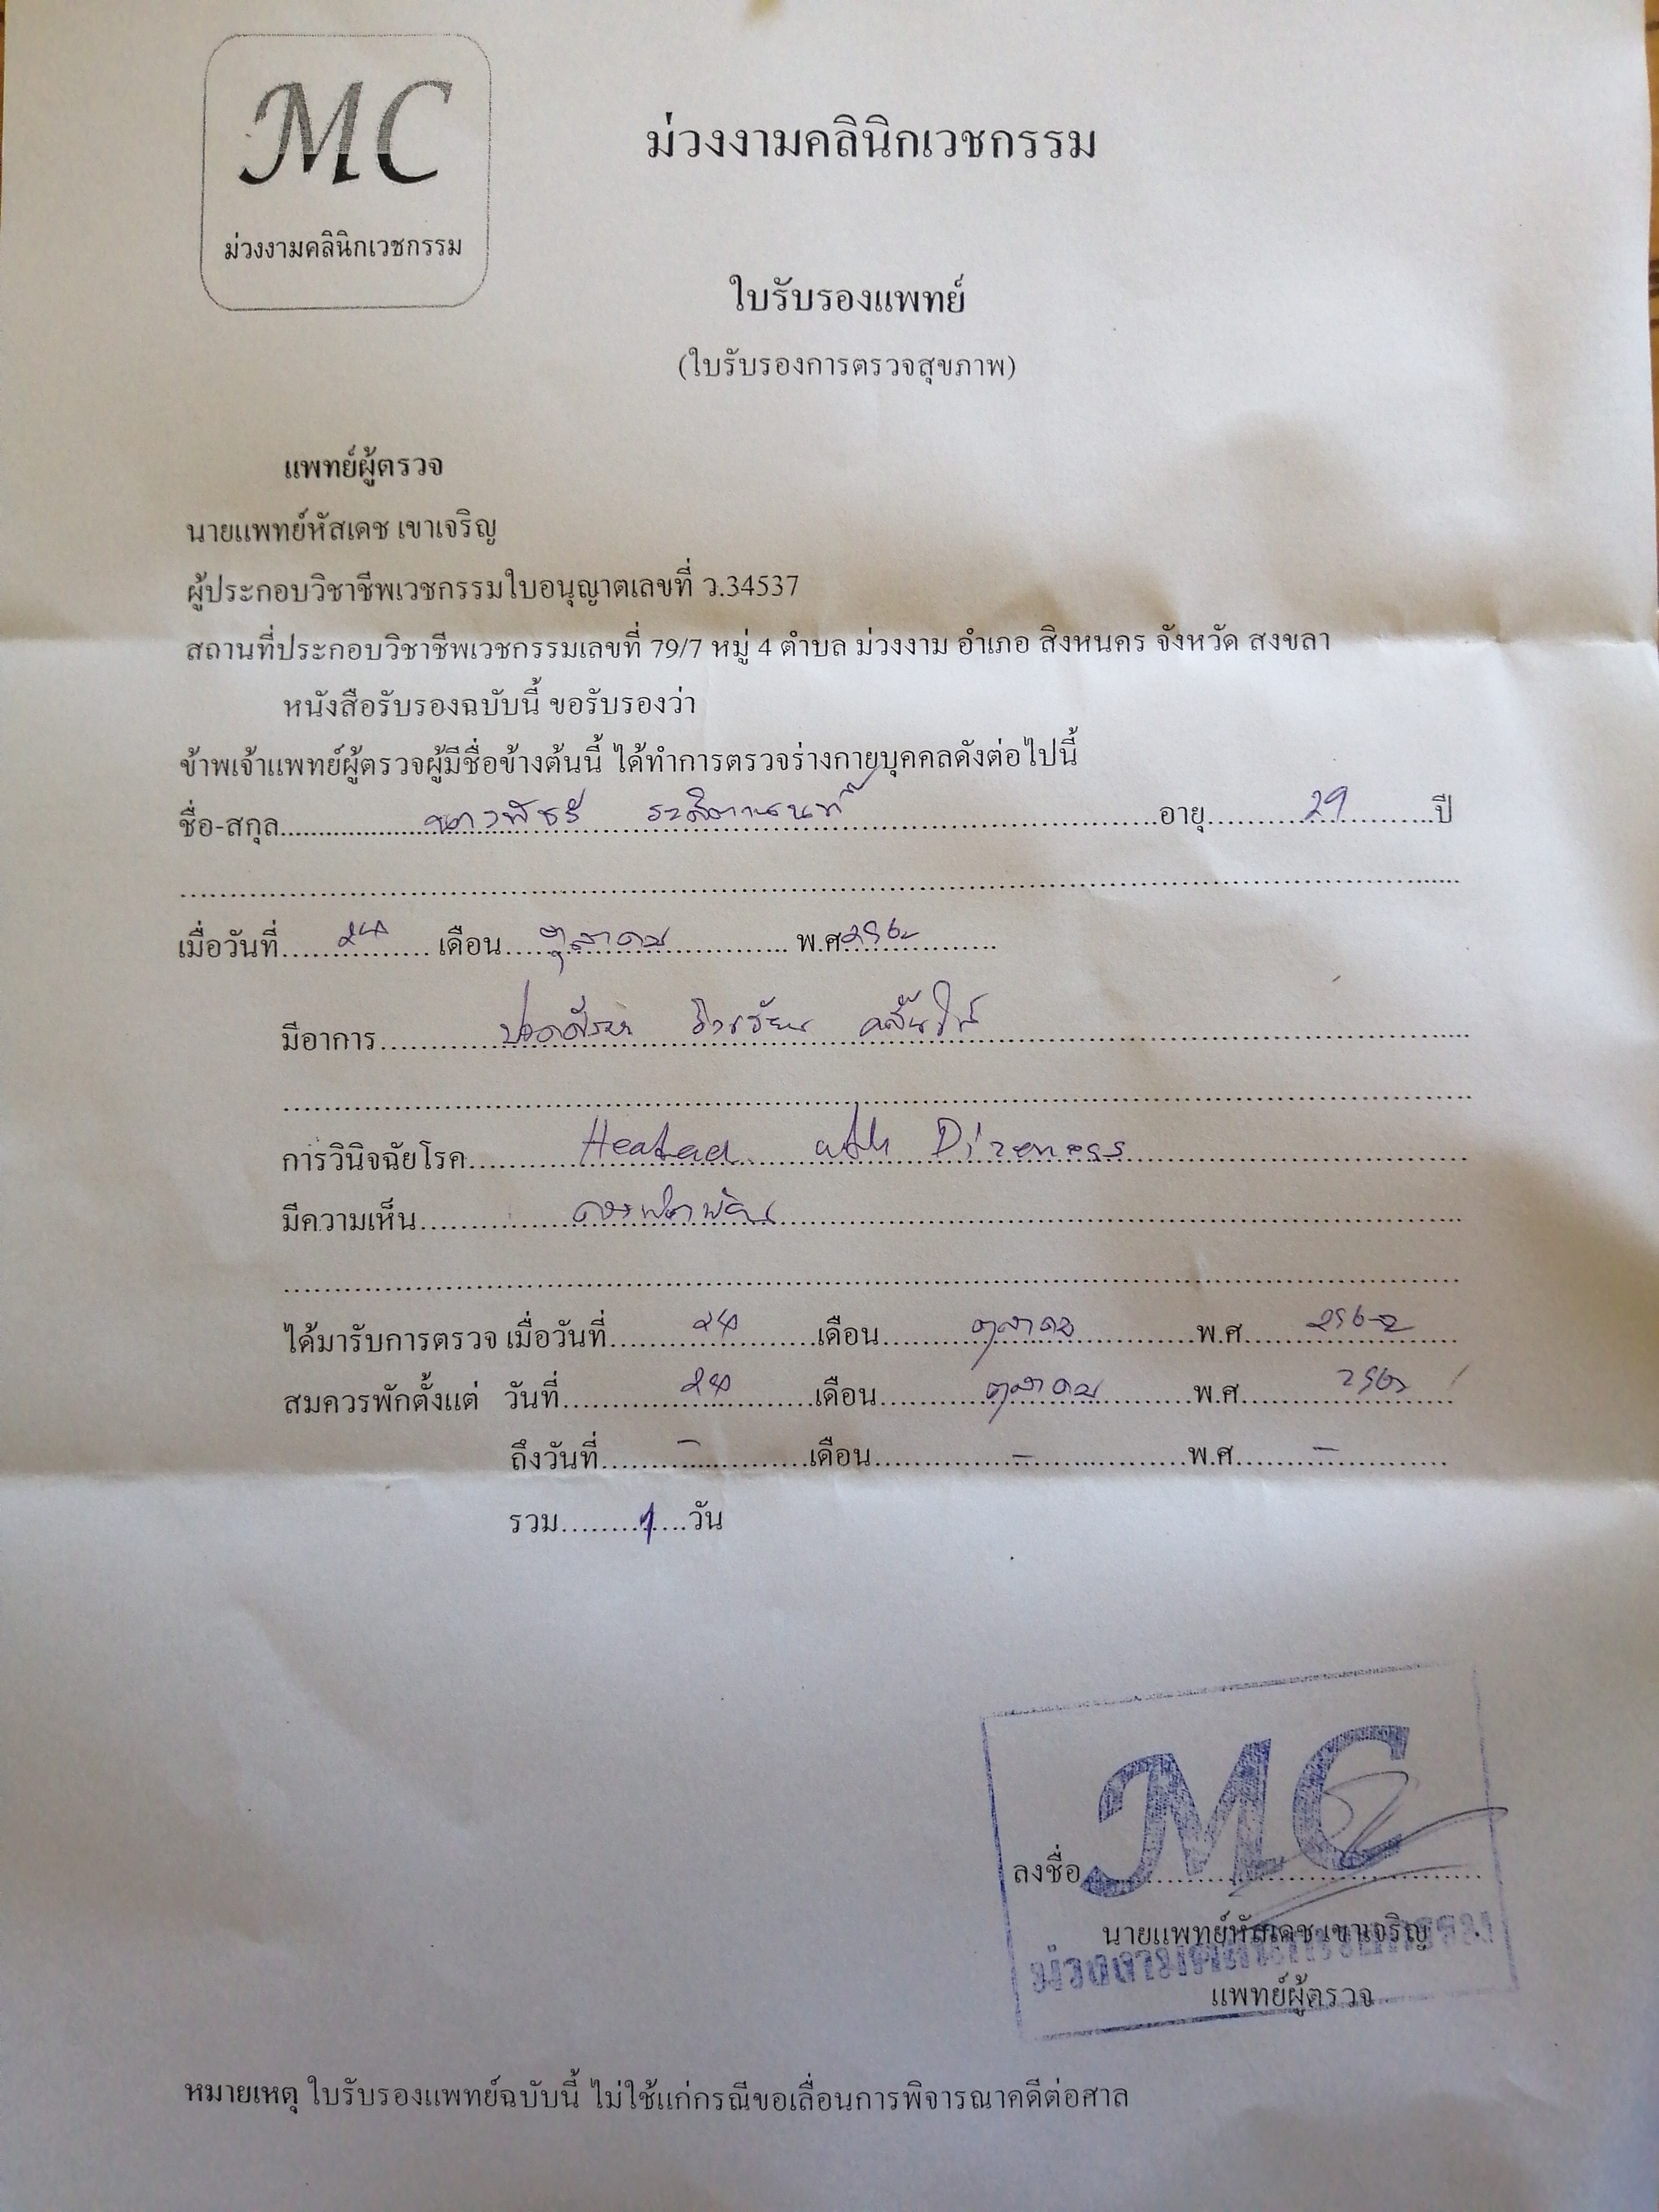 MC
ม่วงงามคลินิกเวชกรรม
ม่วงงามคลินิกเวชกรรม
ใบรับรองแพทย์
(ใบรับรองการตรวจสุขภาพ)
แพทย์ผู้ตรวจ
นายแพทย์หัสเดช เขาเจริญ
ผู้ประกอบวิชาชีพเวชกรรมใบอนุญาตเลขที่ ว.34537
สถานที่ประกอบวิชาชีพเวชกรรมเลขที่ 79/7 หมู่ 4 ตำบล ม่วงงาม อำเภอ สิงหนคร จังหวัด สงขลา
หนังสือรับรองฉบับนี้ ขอรับรองว่า
ข้าพเจ้าแพทย์ผู้ตรวจผู้มีชื่อข้างต้นนี้ ได้ทำการตรวจร่างกายบุคคลดังต่อไปนี้
ชื่อ-สกุล อายุ 29 ปี
เมื่อวันที่ 24 เดือน ตุลาคม พ.ศ 2562
มีอาการ ปวดศีรษะ วิงเวียน คลื่นไส้
การวินิจฉัยโรค with Dizeness
มีความเห็น ควรพัก
ได้มารับการตรวจ เมื่อวันที่ 24 เดือน ตุลาคม พ.ศ 2562
สมควรพักตั้งแต่ วันที่ 24 เดือน ตุลาคม พ.ศ 2562
ถึงวันที่ - เดือน - พ.ศ -
รวม 1 วัน
MC
ลงชื่อ
นายแพทย์หัสเดช เขาเจริญ
ม่วงงามคลินิกเวชกรรม
แพทย์ผู้ตรวจ
หมายเหตุ ใบรับรองแพทย์ฉบับนี้ ไม่ใช้แก่กรณีขอเลื่อนการพิจารณาคดีต่อศาล